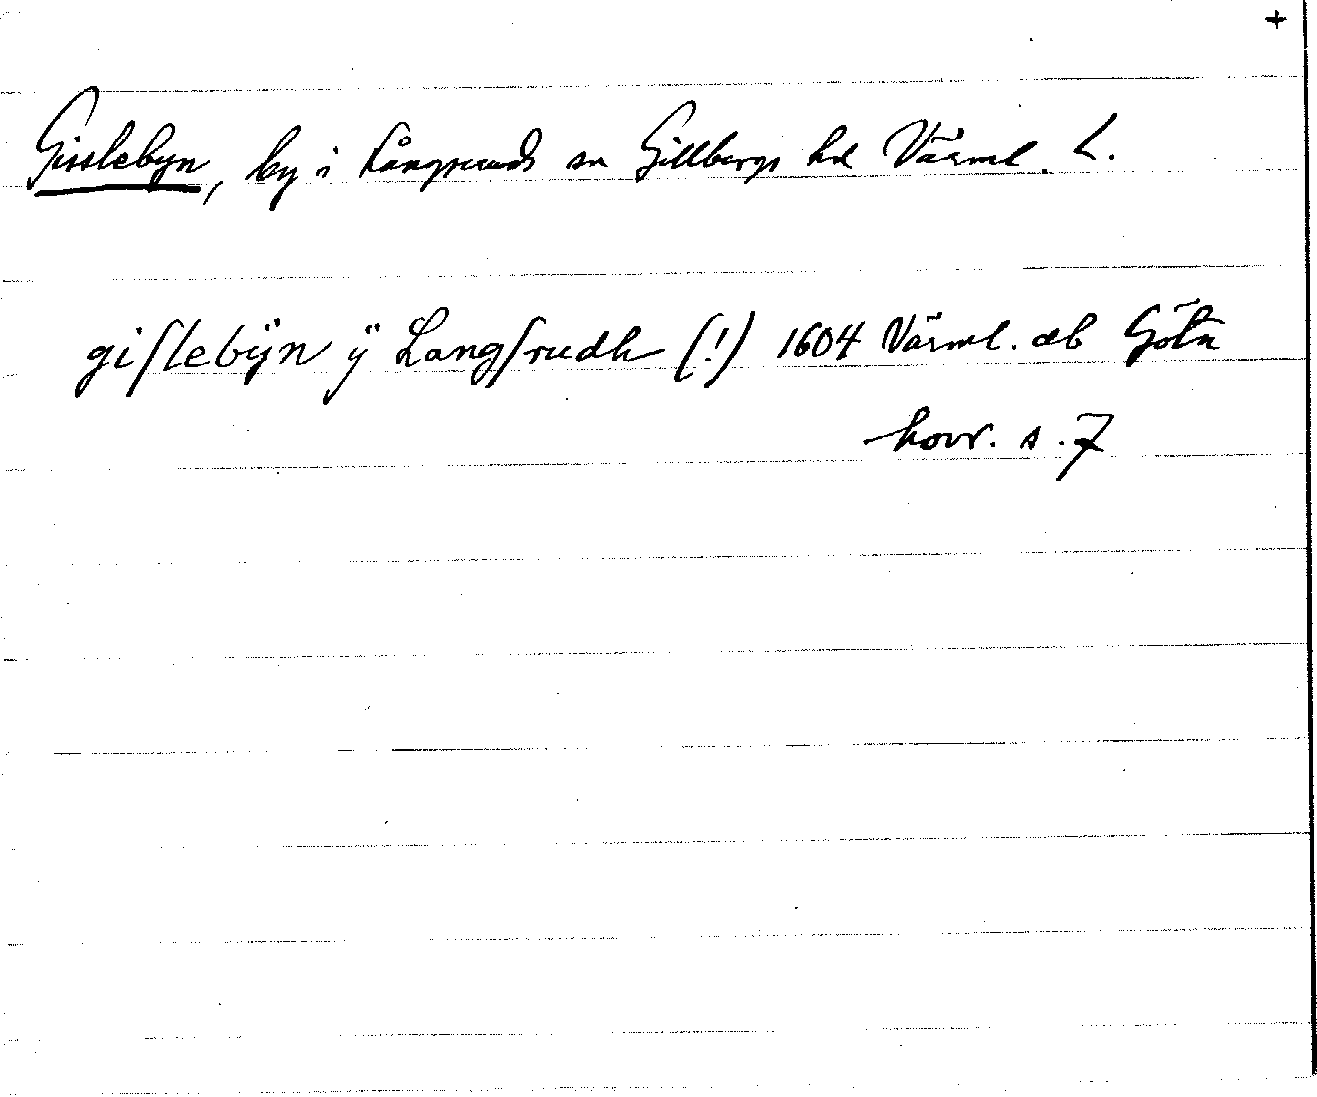 +
Gisslebyn, by i Långseruds sn Gillbergs hd Värml. L.
giſlebÿn ÿ Langſrudh (!) 1604 Värml. db Göta
hovr. s. 7